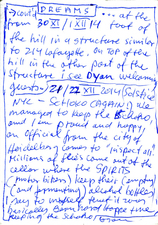 Scout's DREAMS ... at the
from 30 XI / 1 XII / 14 foot of
the hill in a structure similar
to 214 Lafayette. On top of the
hill in the other part of the
structure I see Dyan welcoming
guests. 21/22 XII 2014 (Solstice)
NYC - (AGAIN) We
managed to keep the
and I'm proud and happy
an official from the City of
Heidelberg comes to "inspect" us.
Millions of flies come out of the
cellar where the SPIRITS
keep their (empty)
(and fermenting) alcohol bottles.
I say to myself that it was
basically
keeping the